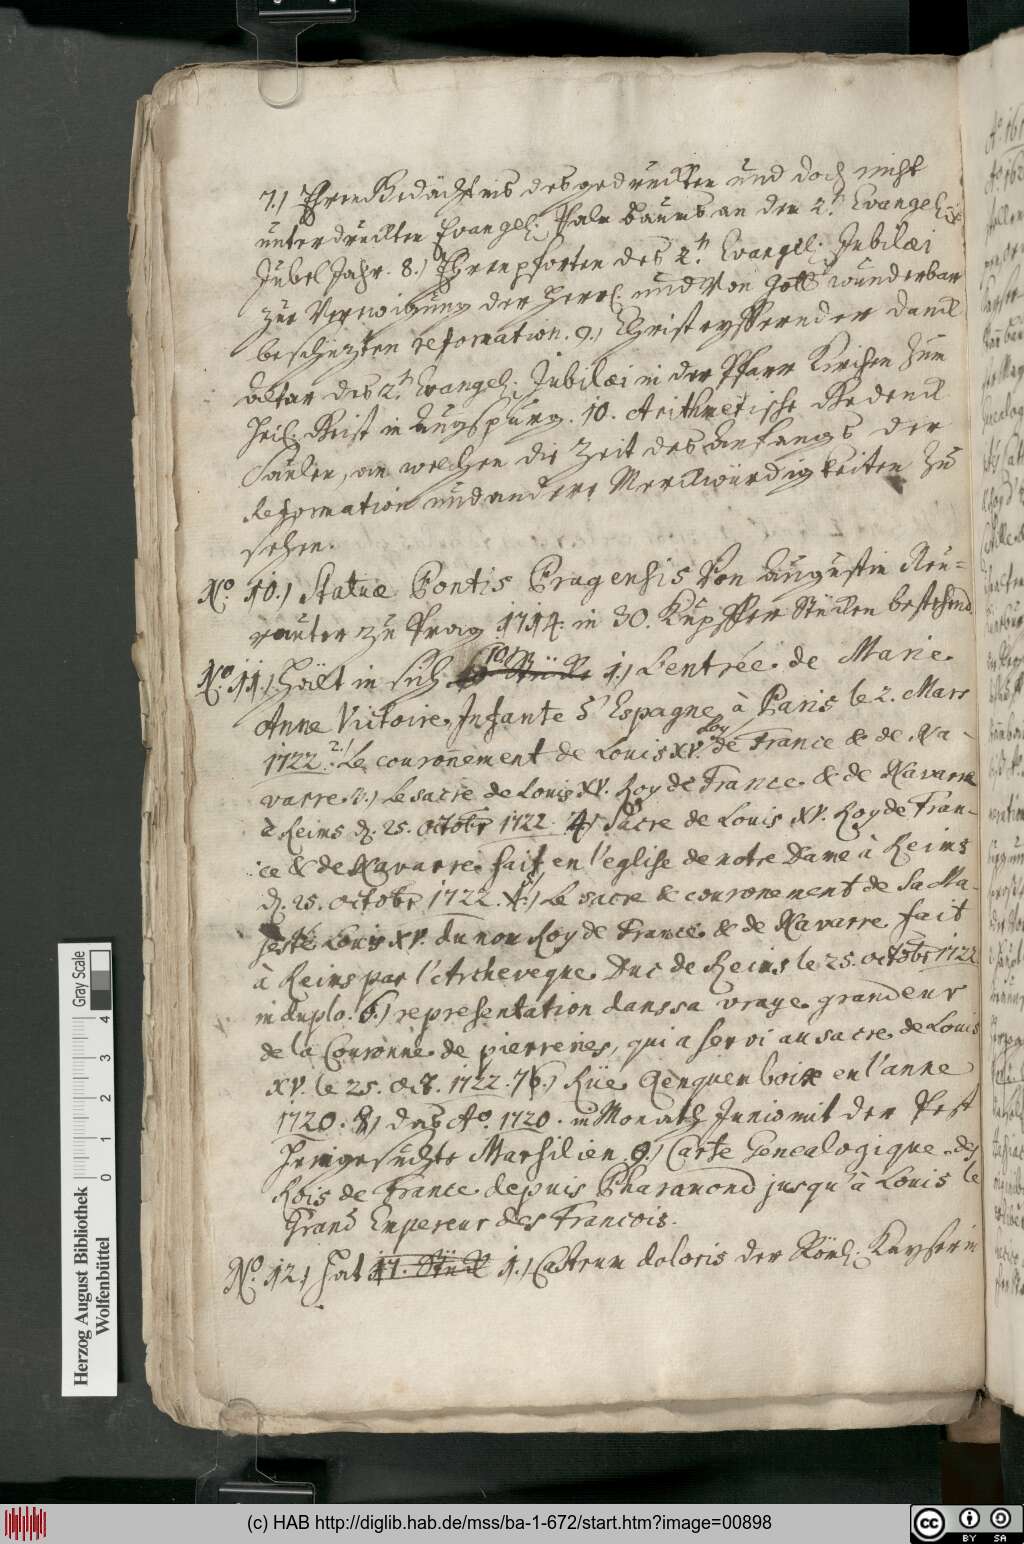 7.) Ehren Gedächtnis des gedruckten und doch nicht
unterdruckten Evangel: Palm baums an den 2.n Evangel:
Jubel Jahr. 8.) Ehrenpforten des 2.n Evangel: Jubilæi
zur Verewigung der Herrl. und Von Gott wunderbar
beschuzten reformation. 9.) Christeyffernder Danck
altar des 2.n Evangel: Jubilæi in der Pfarr Kirchen zum
Heil: Geist in Augspurg. 10. Arithmetische Gedenck
Säulen, an welchen die Zeit des Anfangs der
Reformation und andere Merckwürdigkeiten zu
sehen.
No. 10.) Statuæ Pontis Pragensis Von Augustin Neu=
rauter zu Prag 1714. in 30. Kupffer Stücken bestehend
No. 11.) Hält in sich 10 Stück 1.) L'entrée de Marie
Anne Victoire, Infante d'Espagne à Paris le 2. Mars
1722. 2.) Le couronnement de Louis XV. Roy de France & de Na-
varre. 3.) Le sacre de Louis XV. Roy de France & de Navarre
à Reims d. 25. octobr 1722. 4.) Sacre de Louis XV. Roy de Fran-
ce & de Navarre fait en l'eglise de notre Dame à Reims
d. 25. octobr 1722. 5.) Le sacre & couronement de Sa Ma-
jesté Louis XV. du nom Roy de France & de Navarre fait
à Reims par l'Archeveque Duc de Reims le 25. octobr 1722
in duplo. 6.) representation dans sa vraye grandeur
de la Couronne de pierreries, qui a servi au sacre de Louis
XV. le 25. oct. 1722. 7.) Rüe Qenquenboix en l'anne
1720. 8.) das Ao. 1720. im Monath Junio mit der Pest
Heimgesuchte Marsilien. 9.) Carte Genealogique des
Rois de France depuis Pharamond jusqu'à Louis le
Grand Empereur des Francois.
No. 12.) Hat 11. Stück 1.) Castrum doloris der Röm: Kayserin
Herzog August Bibliothek
Wolfenbüttel
Gray Scale
0 1 2 3 4
(c) HAB http://diglib.hab.de/mss/ba-1-672/start.htm?image=00898
cc BY SA